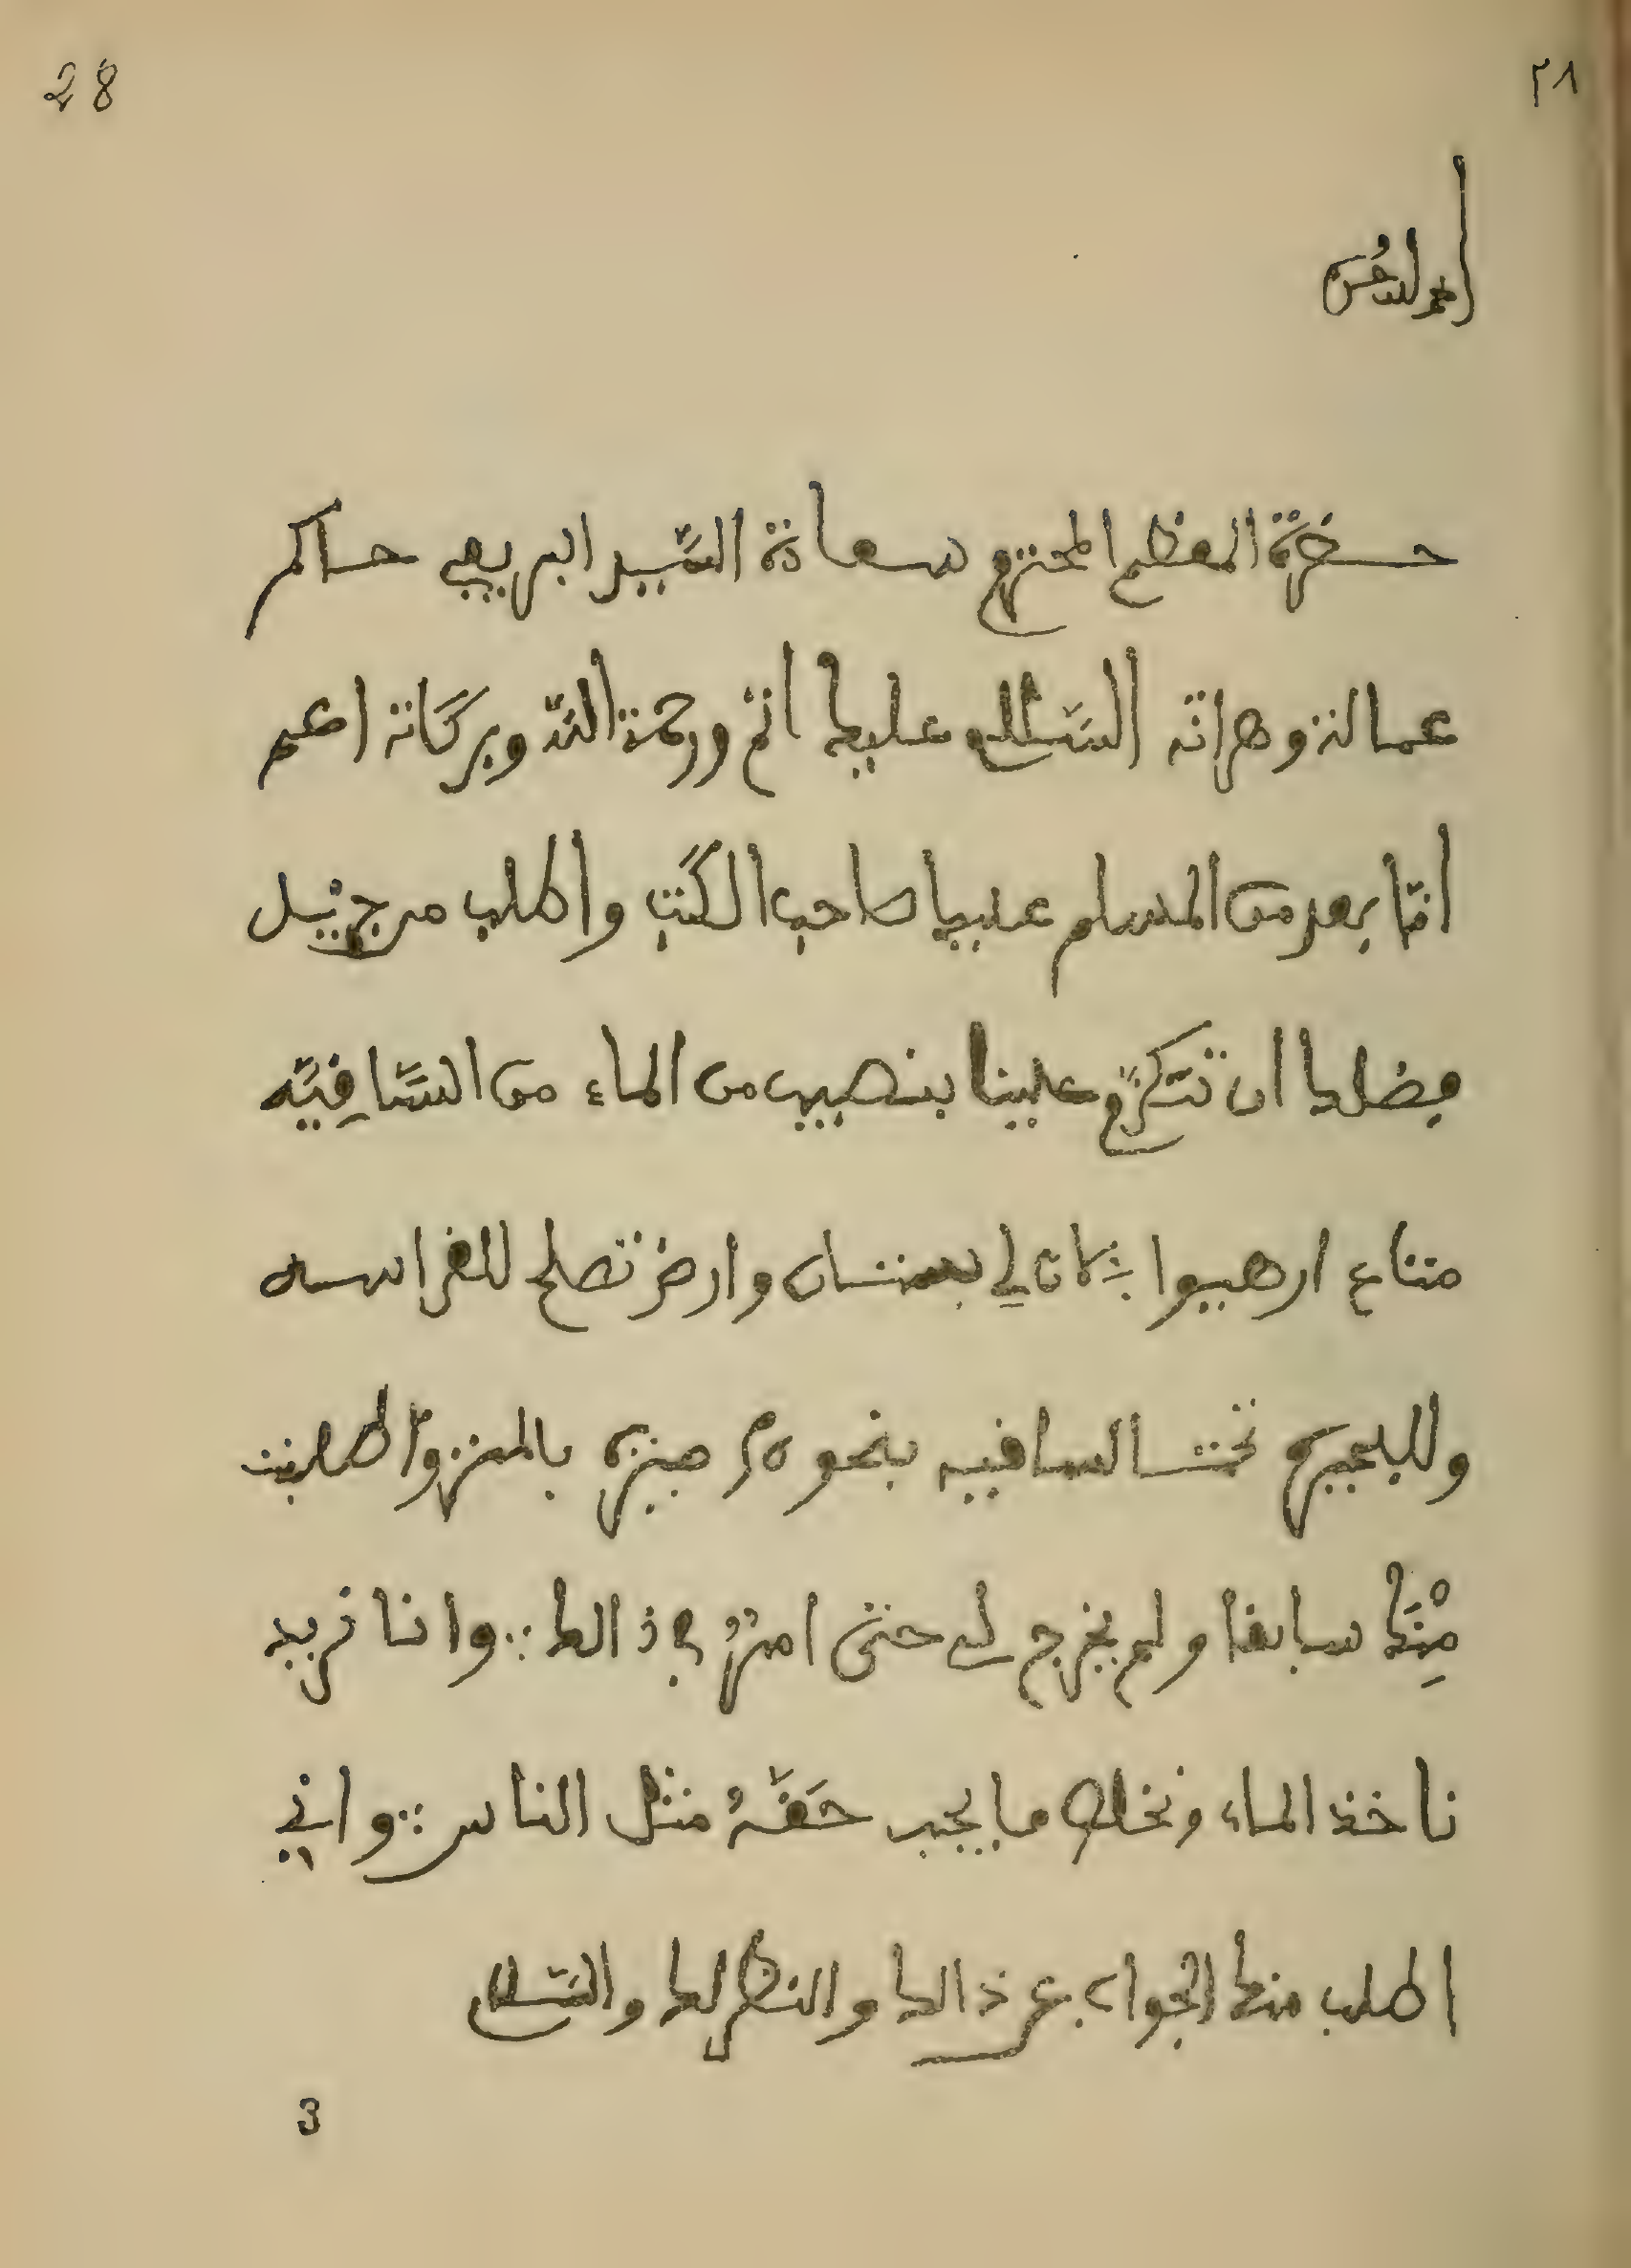 28
٢٨
الحمد لله
حضرة المعظم المحترم سعادة السّيد ابريفي حاكم
عمالة وهران السّلام عليك انتم ورحمة اللّه وبركاته اعم
امّا بعد من المسلم عليك صاحب الكتب واطلب من جزيل
فضلك ان تتكرّم علينا بنصيب من الماء من السّافيّه
متاع ارهبيوا بكان لي بستان وارض تصلح للغراسه
وللبحيرة تحت السافيه بنحو جبيرة بالمتر واطلبت
مِنْك سابقا ولم يخرج لي حتى امر في ذالك ∴ وانا نريد
ناخذ الماء ونخلص ما يجب حقّهُ مثل الناس ∴ واني
اطلب منك الجواب عن ذالك والنظر لك والسّلام
3